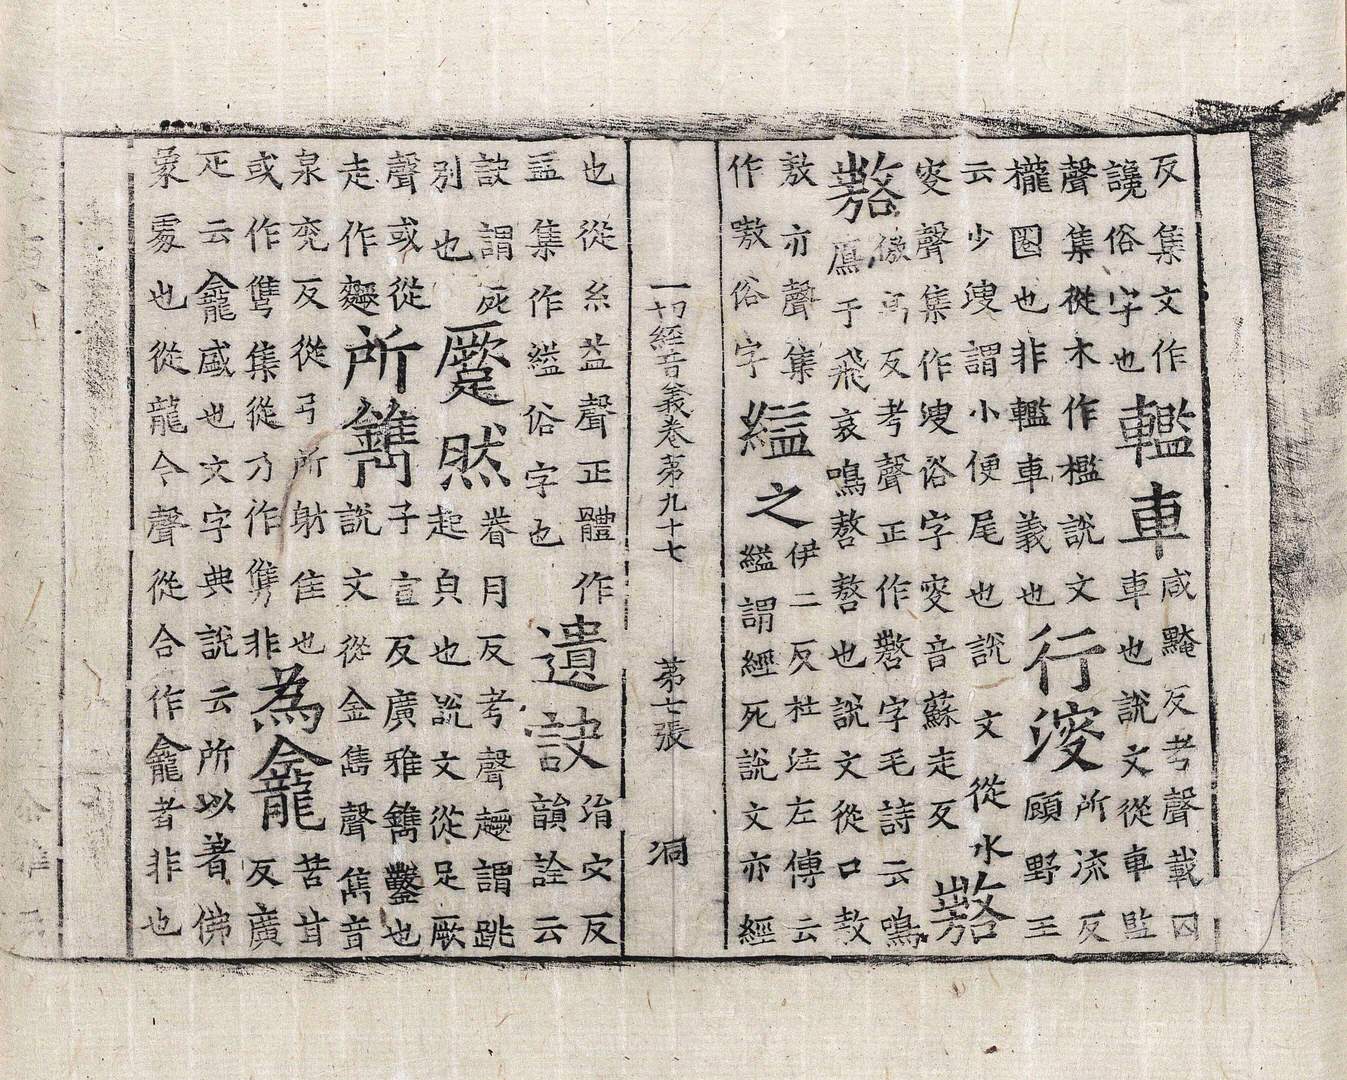 反集文作
讒俗字也
轞車
咸黤反考聲載囚
車也說文從車監
聲集從木作檻說文
櫳圈也非轞車義也
行溲
所流反
顧野王
云少溲謂小便尾也說文從水
叜聲集作溲俗字叜音蘇走反
嗸
嗸
傲高反考聲正作嗸字毛詩云鳴
鴈于飛哀鳴嗸嗸也說文從口敖
敖亦聲集
作嗷俗字
縊之
伊二反杜注左傳云
縊謂經死說文亦經
一切經音義卷第九十七 第七張 洞
也從糸益聲正體作
集作縊俗字也
遺訣
穴反
韻詮云
訣謂死
別也
蹷然
眷月反考聲謂跳
起皃也說文從足厥
聲或從
走作
所鐫
子宣反廣雅鐫鑿也
說文從金雋聲雋音
泉兖反從弓所射隹也
或作隽集從乃作隽非
為龕
苦甘
反廣
疋云龕盛也文字典說云所以著佛
處也從龍今聲從合作龕者非也